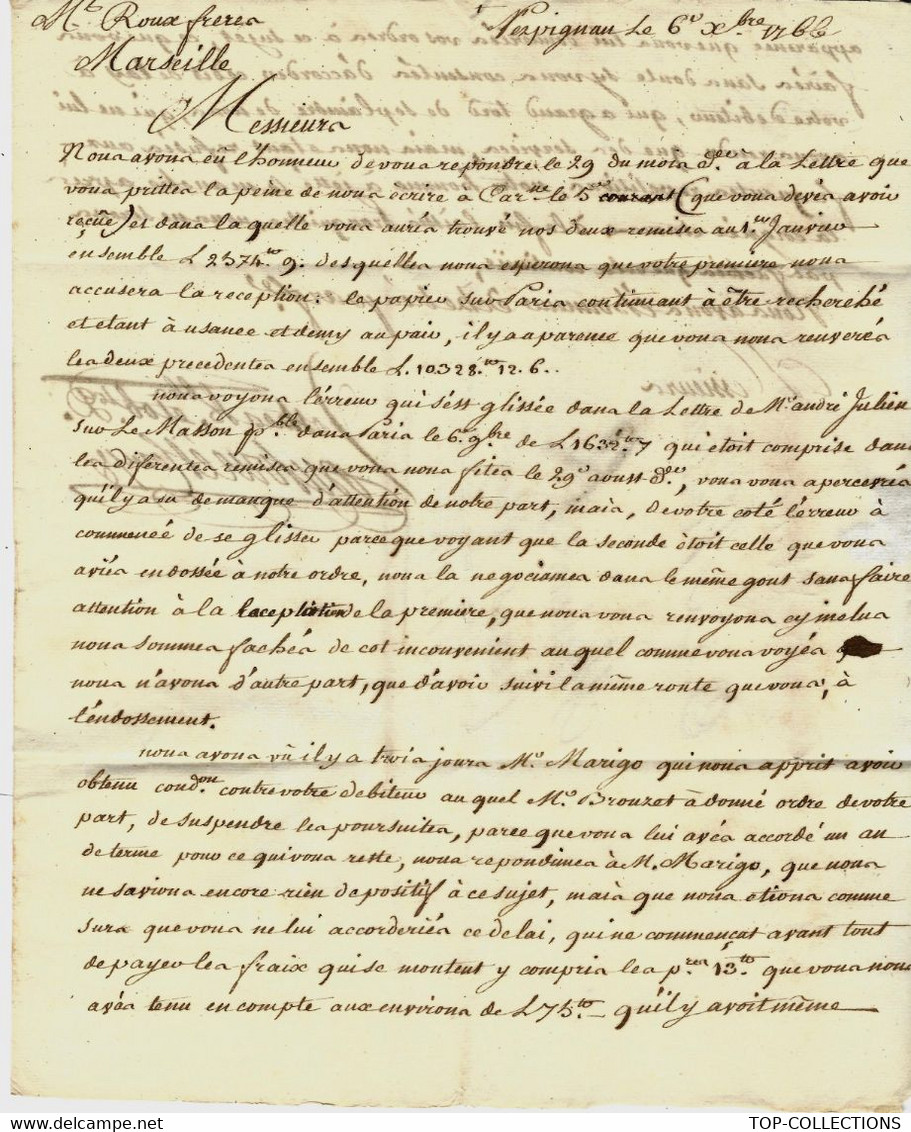 Mrs. Roux freres
Perpignan Le 6e Xbre 1766
Marseille
Messieurs
Nous avons eû l'honneur de vous repondre le 29 du mois der. à la Lettre que
vous prittes la peine de nous ècrire à Car.ne le 5e courant (que vous devés avoir
reçûe) et dans la quelle vous aurés trouvé nos deux remises au 1er. Janvier
ensemble L 2374.to 9. desquelles nous esperons que votre premiere nous
accusera la reception. le papier sur Paris continuant à être recherché
et etant à usance et demy au pair, il y a aparence que vous nous renverés
les deux precedentes ensemble L. 10328.to 12. 6..
nous voyons l'erreur qui s'est glissée dans la Lettre de Mr. andré Julien
sur Le Masson pble dans Paris le 6e. 9bre de L 1632to 7 qui ètoit comprise dans
les diferentes remises que vous nous fites le 29e aoust der, vous vous apercevrés
qu'il y a eu de manque d'attention de notre part, mais, de votre coté l'erreur à
commencé de se glisser parce que voyant que la seconde ètoit celle que vous
aviés endossée à notre ordre, nous la negociames dans le même gout sans faire
attention à la acceptation de la premiere, que nous vous renvoyons cy inclus
nous sommes fachés de cet inconvenient au quel comme vous voyés
nous n'avons d'autre part, que d'avoir suivi la même route que vous, à
l'endossement.
nous avons vû il y a trois jours Mr. Marigo qui nous apprit avoir
obtenu cond.on contre votre debiteur au quel Mr. Brouzet à donné ordre de votre
part, de suspendre les poursuites, parce que vous lui avés accordé un an
de terme pour ce qui vous reste, nous repondimes à M. Marigo, que nous
ne savions encore rien de positif à ce sujet, mais que nous etions comme
surs que vous ne lui accorderiés ce delai, qui ne commençat avant tout
de payer les fraix qui se montent y compris les pres 13.to que vous nous
avés tenu en compte aux environs de L 75to qu'il y avoit même
TOP-COLLECTIONS